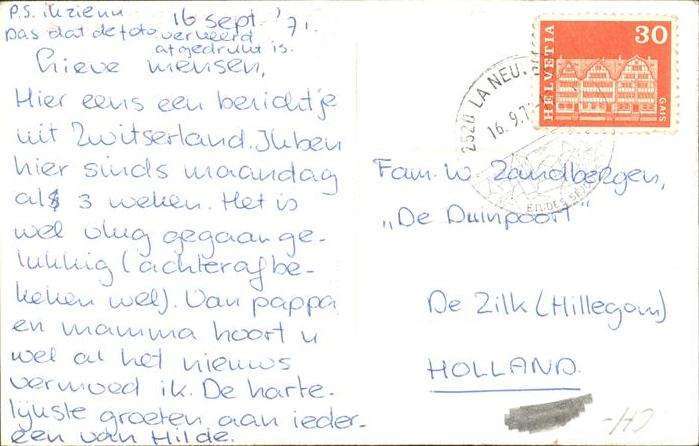 P.S. ik zie nu
16 sept. '71.
pas dat de foto verkeerd
afgedrukt is.
Lieve mensen,
Hier eens een berichtje
uit Zwitserland. Ik ben
hier sinds maandag
al 3 weken. Het is
wel vlug gegaan ge-
lukkig (achteraf be-
keken wel). Van pappa
en mamma hoort u
wel al het nieuws
vermoed ik. De harte-
lijkste groeten aan ieder-
een van Hilde.
HELVETIA
30
GAIS
2520 LA NEU.
16.9.7
Fam. W. Zandbergen,
„De Duinpoort"
De Zilk (Hillegom)
HOLLAND.